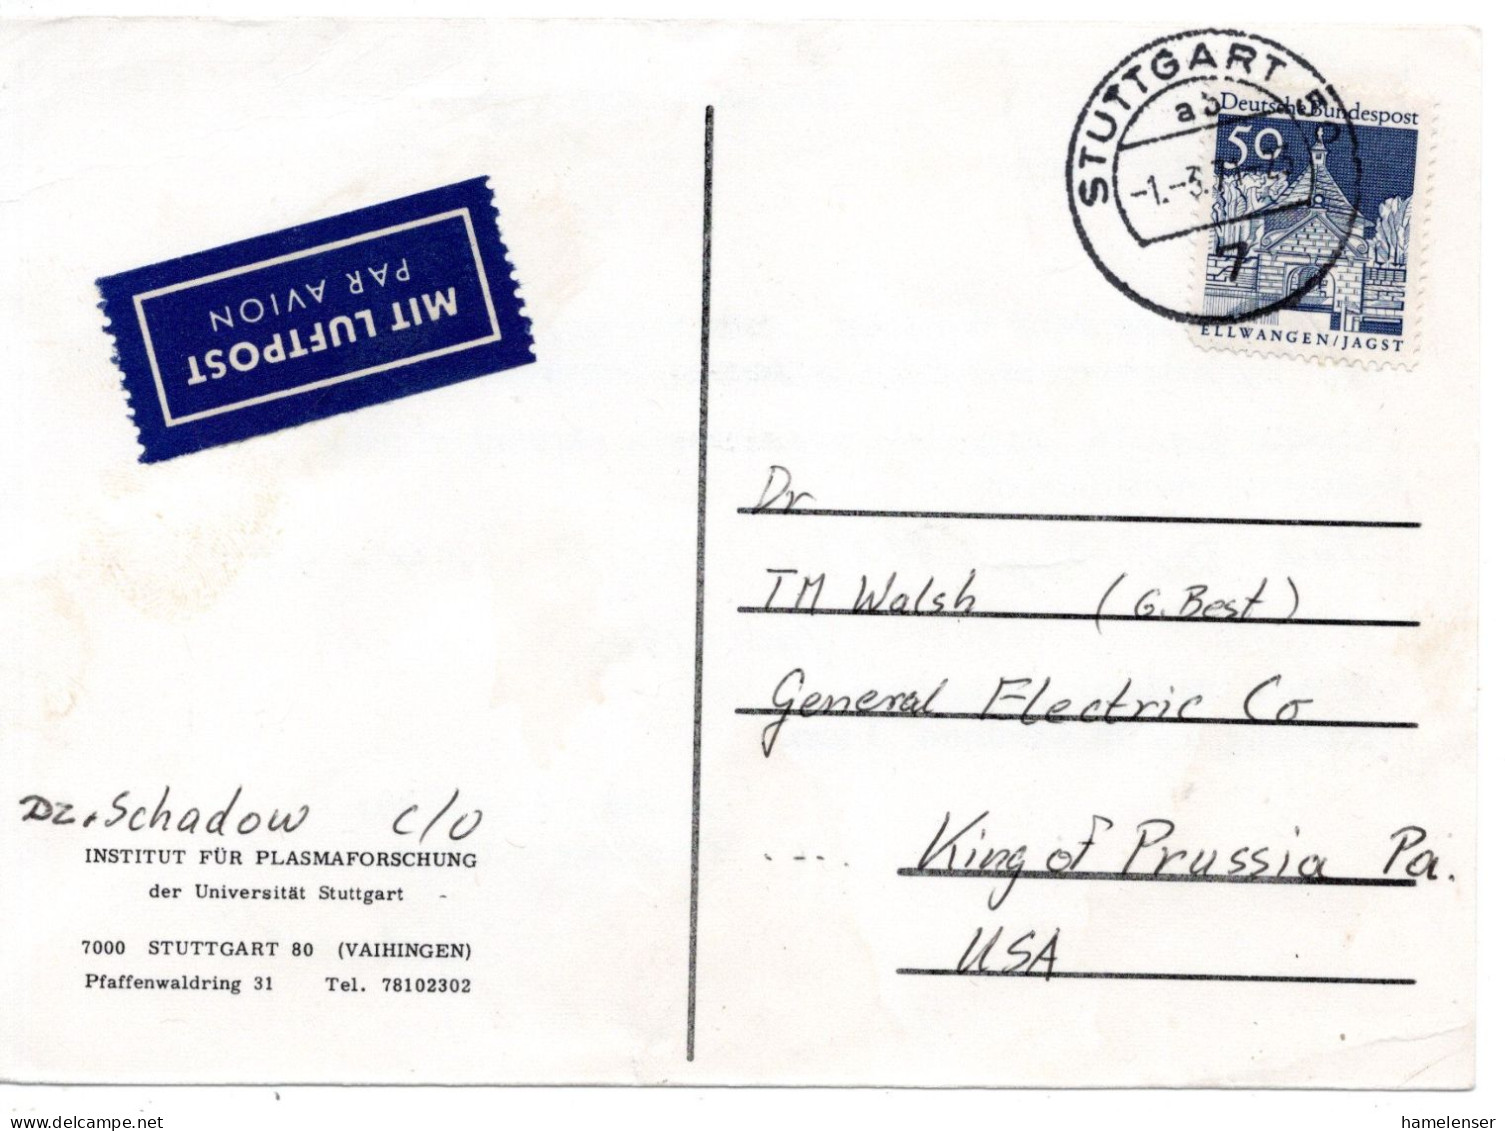 STUTTGART 80
-1.-3.7
7
Deutsche Bundespost
50
ELLWANGEN/JAGST
MIT LUFTPOST
PAR AVION
Dr
TM Walsh (G. Best)
General Electric Co
King of Prussia Pa.
USA
Dr. Schadow c/o
INSTITUT FÜR PLASMAFORSCHUNG
der Universität Stuttgart
7000 STUTTGART 80 (VAIHINGEN)
Pfaffenwaldring 31 Tel. 78102302
www.delcampe.net
hamelenser